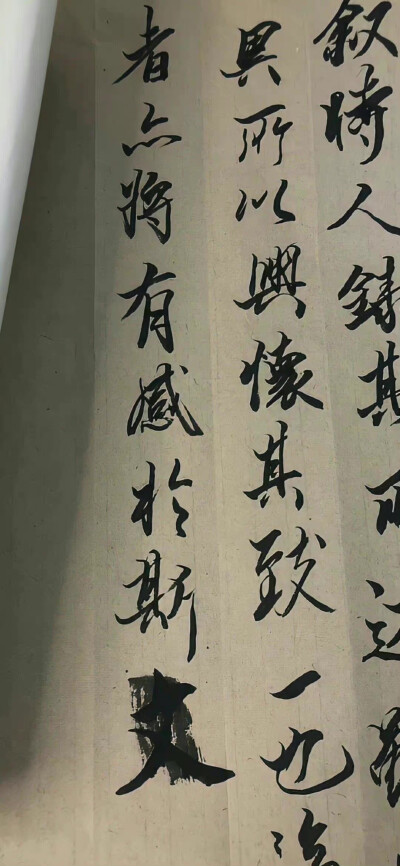 叙時人錄其所述雖
異所以興懷其致一也後
者亦將有感於斯文